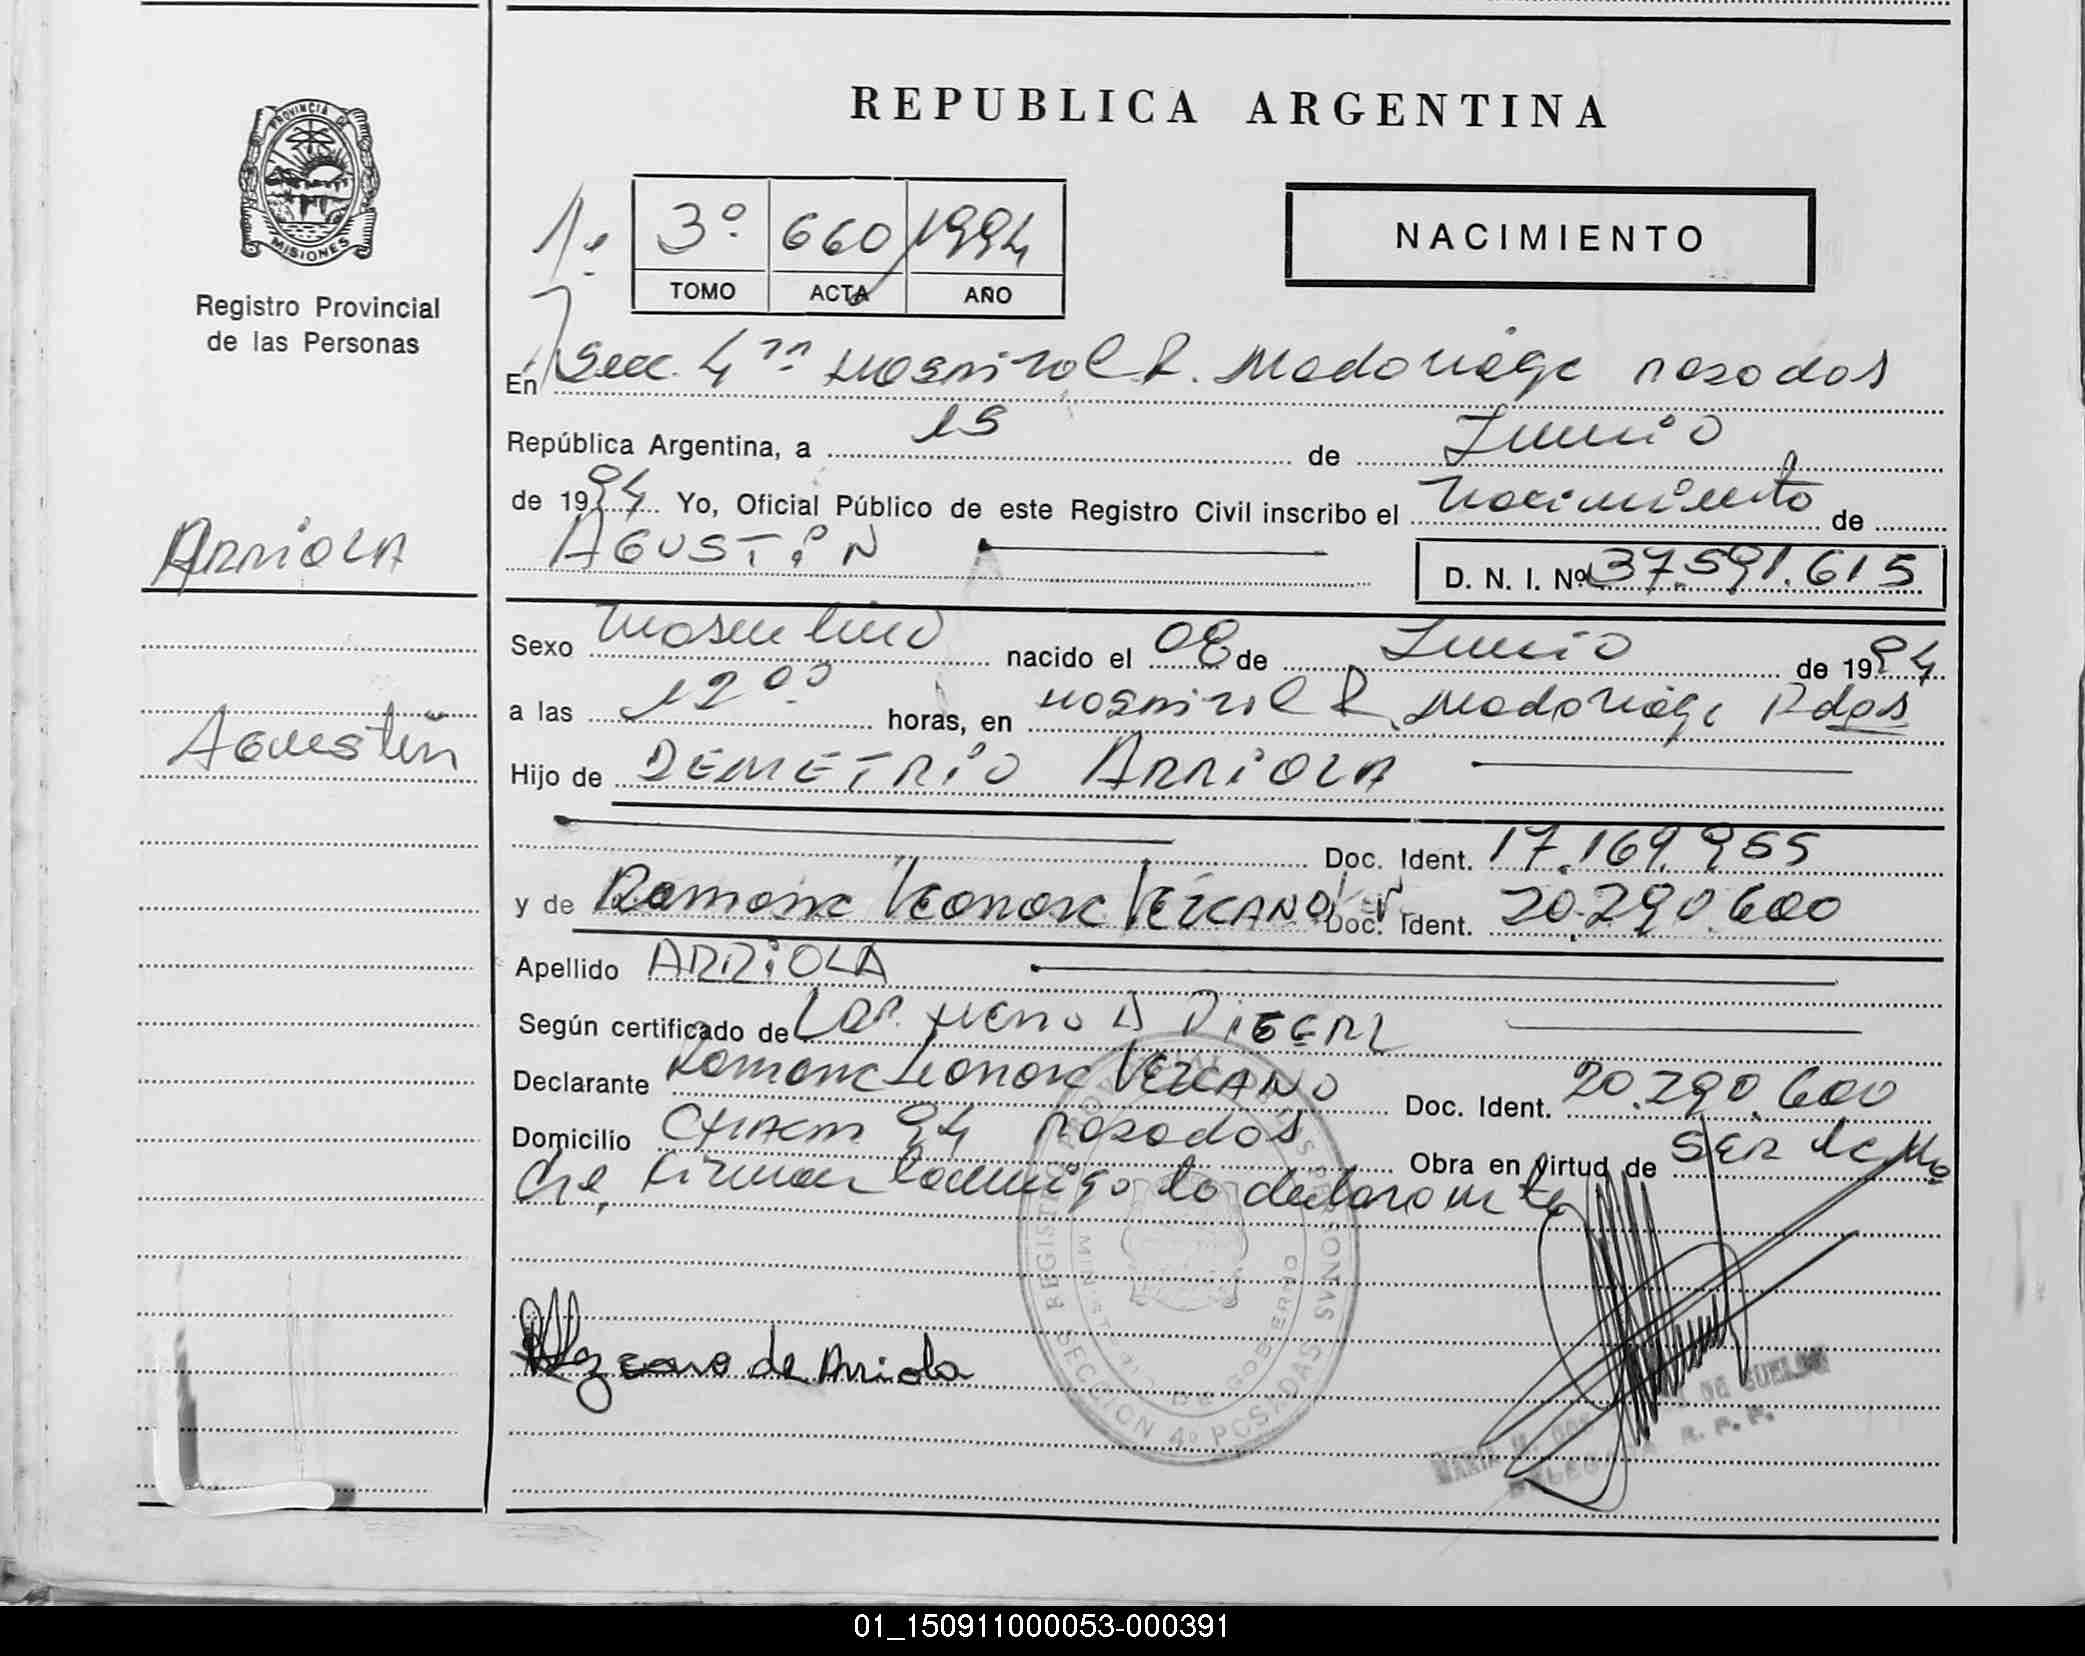 REPUBLICA ARGENTINA
PROVINCIA DE
MISIONES
Registro Provincial
de las Personas
3º 660 1994
TOMO ACTA AÑO
NACIMIENTO
En Secc. 4ta Hospital R. Madariaga Posadas
República Argentina, a 15 de Junio
de 1994 Yo, Oficial Público de este Registro Civil inscribo el Nacimiento de
ARRIOLA
AGUSTIN
D. N. I. Nº 37.591.615
Sexo Masculino nacido el 08 de Junio de 1994
Agustin
a las 12 00 horas, en Hospital R. Madariaga Pdas
Hijo de DEMETRIO ARRIOLA
Doc. Ident. 17.169.955
y de Ramona Leonora LEZCANO Doc. Ident. 20.290.600
Apellido ARRIOLA
Según certificado de
Declarante Ramona Leonora LEZCANO Doc. Ident. 20.290.600
Domicilio 94 Posadas
Obra en Virtud de SER la Ma
dre, Firman conmigo la declarante
REGISTRO PROVINCIAL DE LAS PERSONAS
MINISTERIO DE GOBIERNO
SECCION 4º POSADAS
Lezcano de Arriola
MARIA DE
R. P. P.
01_150911000053-000391